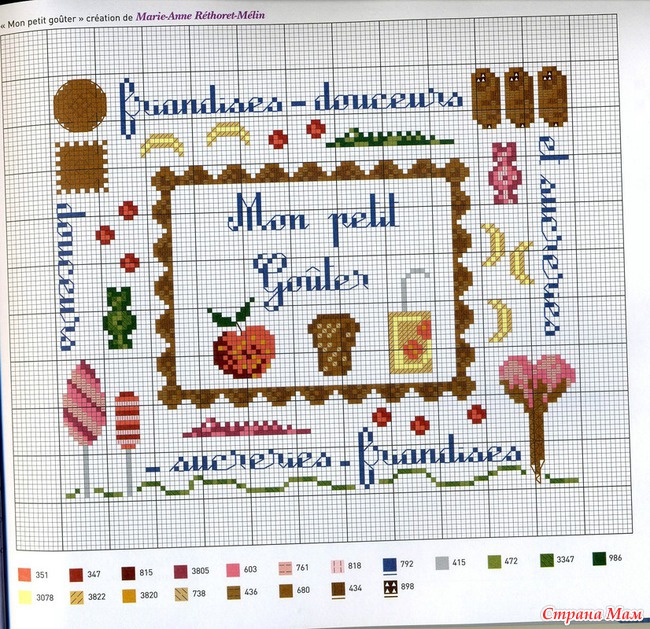 « Mon petit goûter » création de Marie-Anne Réthoret-Mélin
friandises - douceurs
et sucreries
douceurs
Mon petit
Goûter
- sucreries - friandises
351 347 815 3805 603 761 818 792 415 472 3347 986
3078 3822 3820 738 436 680 434 898
Страна Мам